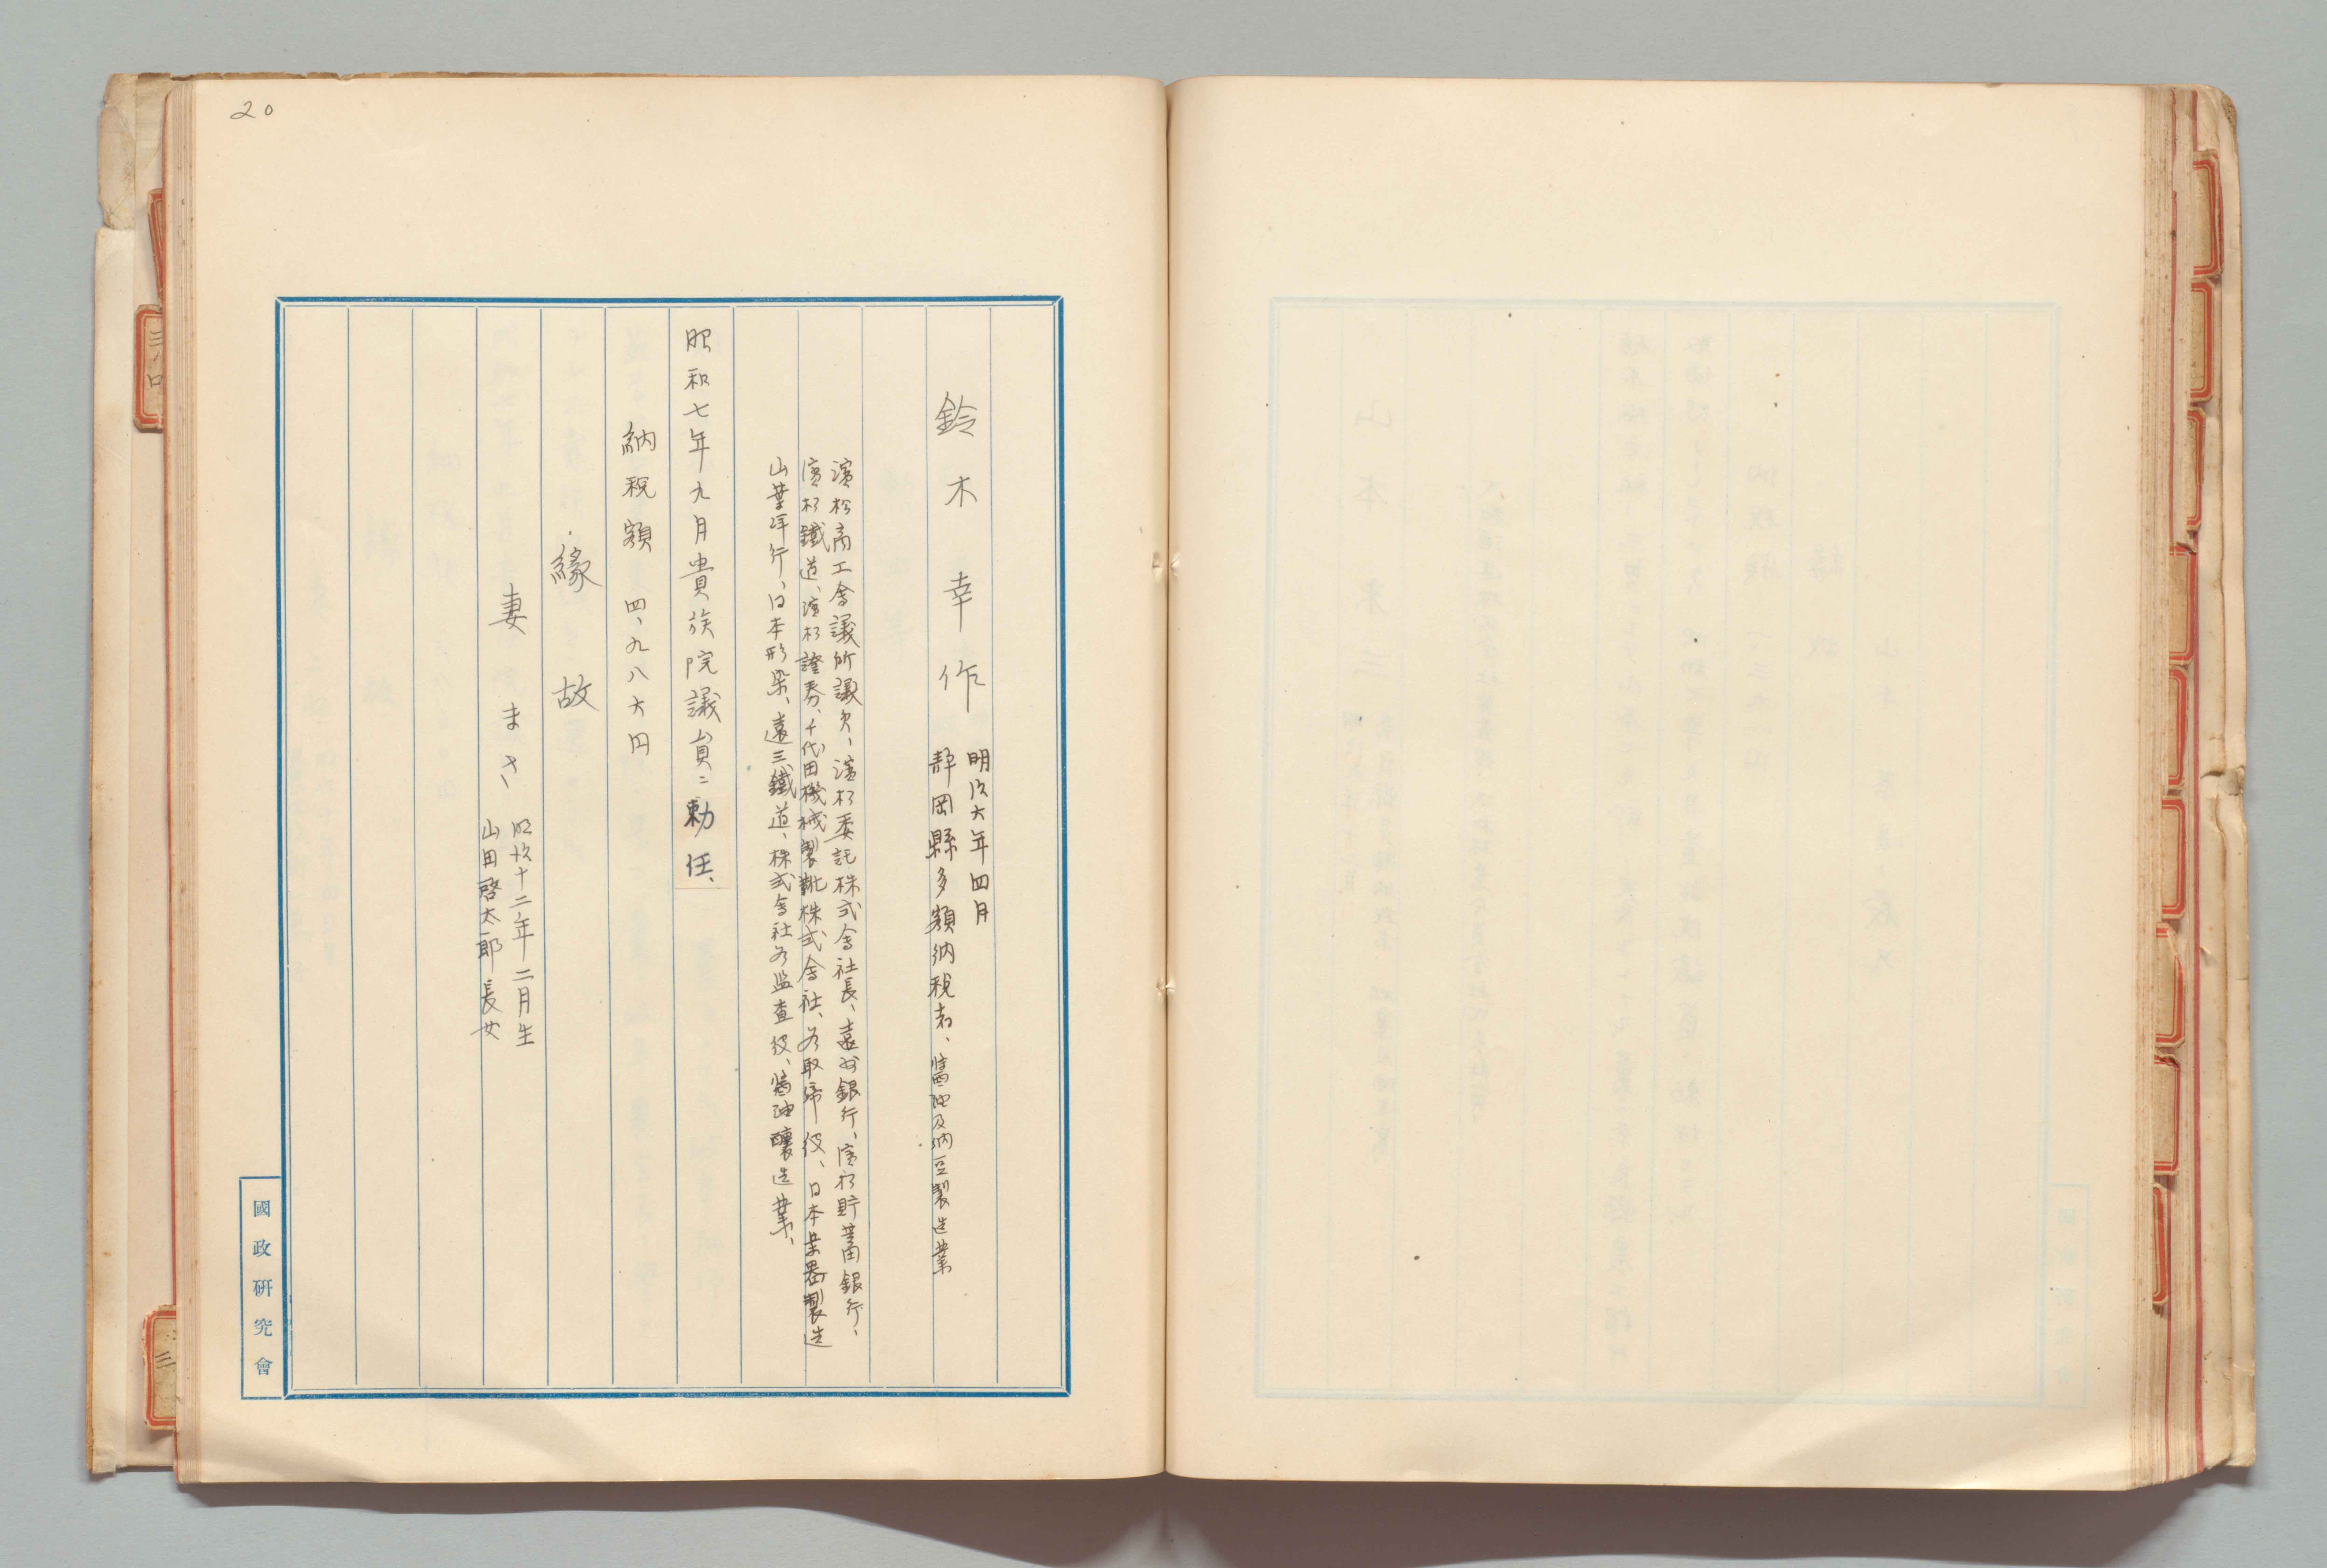 20
鈴木幸作
明治六年四月
静岡縣多額納税者、醤油及納豆製造業
濱松商工會議所議員、濱松委託株式會社長、遠州銀行、濱松貯蓄銀行、
濱松鐵道、濱松證券、千代田機械製靴株式會社、各取締役、日本楽器製造
山葉洋行、日本形染、遠三鐵道、株式會社各監査役、醤油釀造業、
昭和七年九月貴族院議員ニ勅任、
納税額 四、九八六円
縁故
妻 まさ
明治十二年二月生
山田啓太郎長女
國政研究會